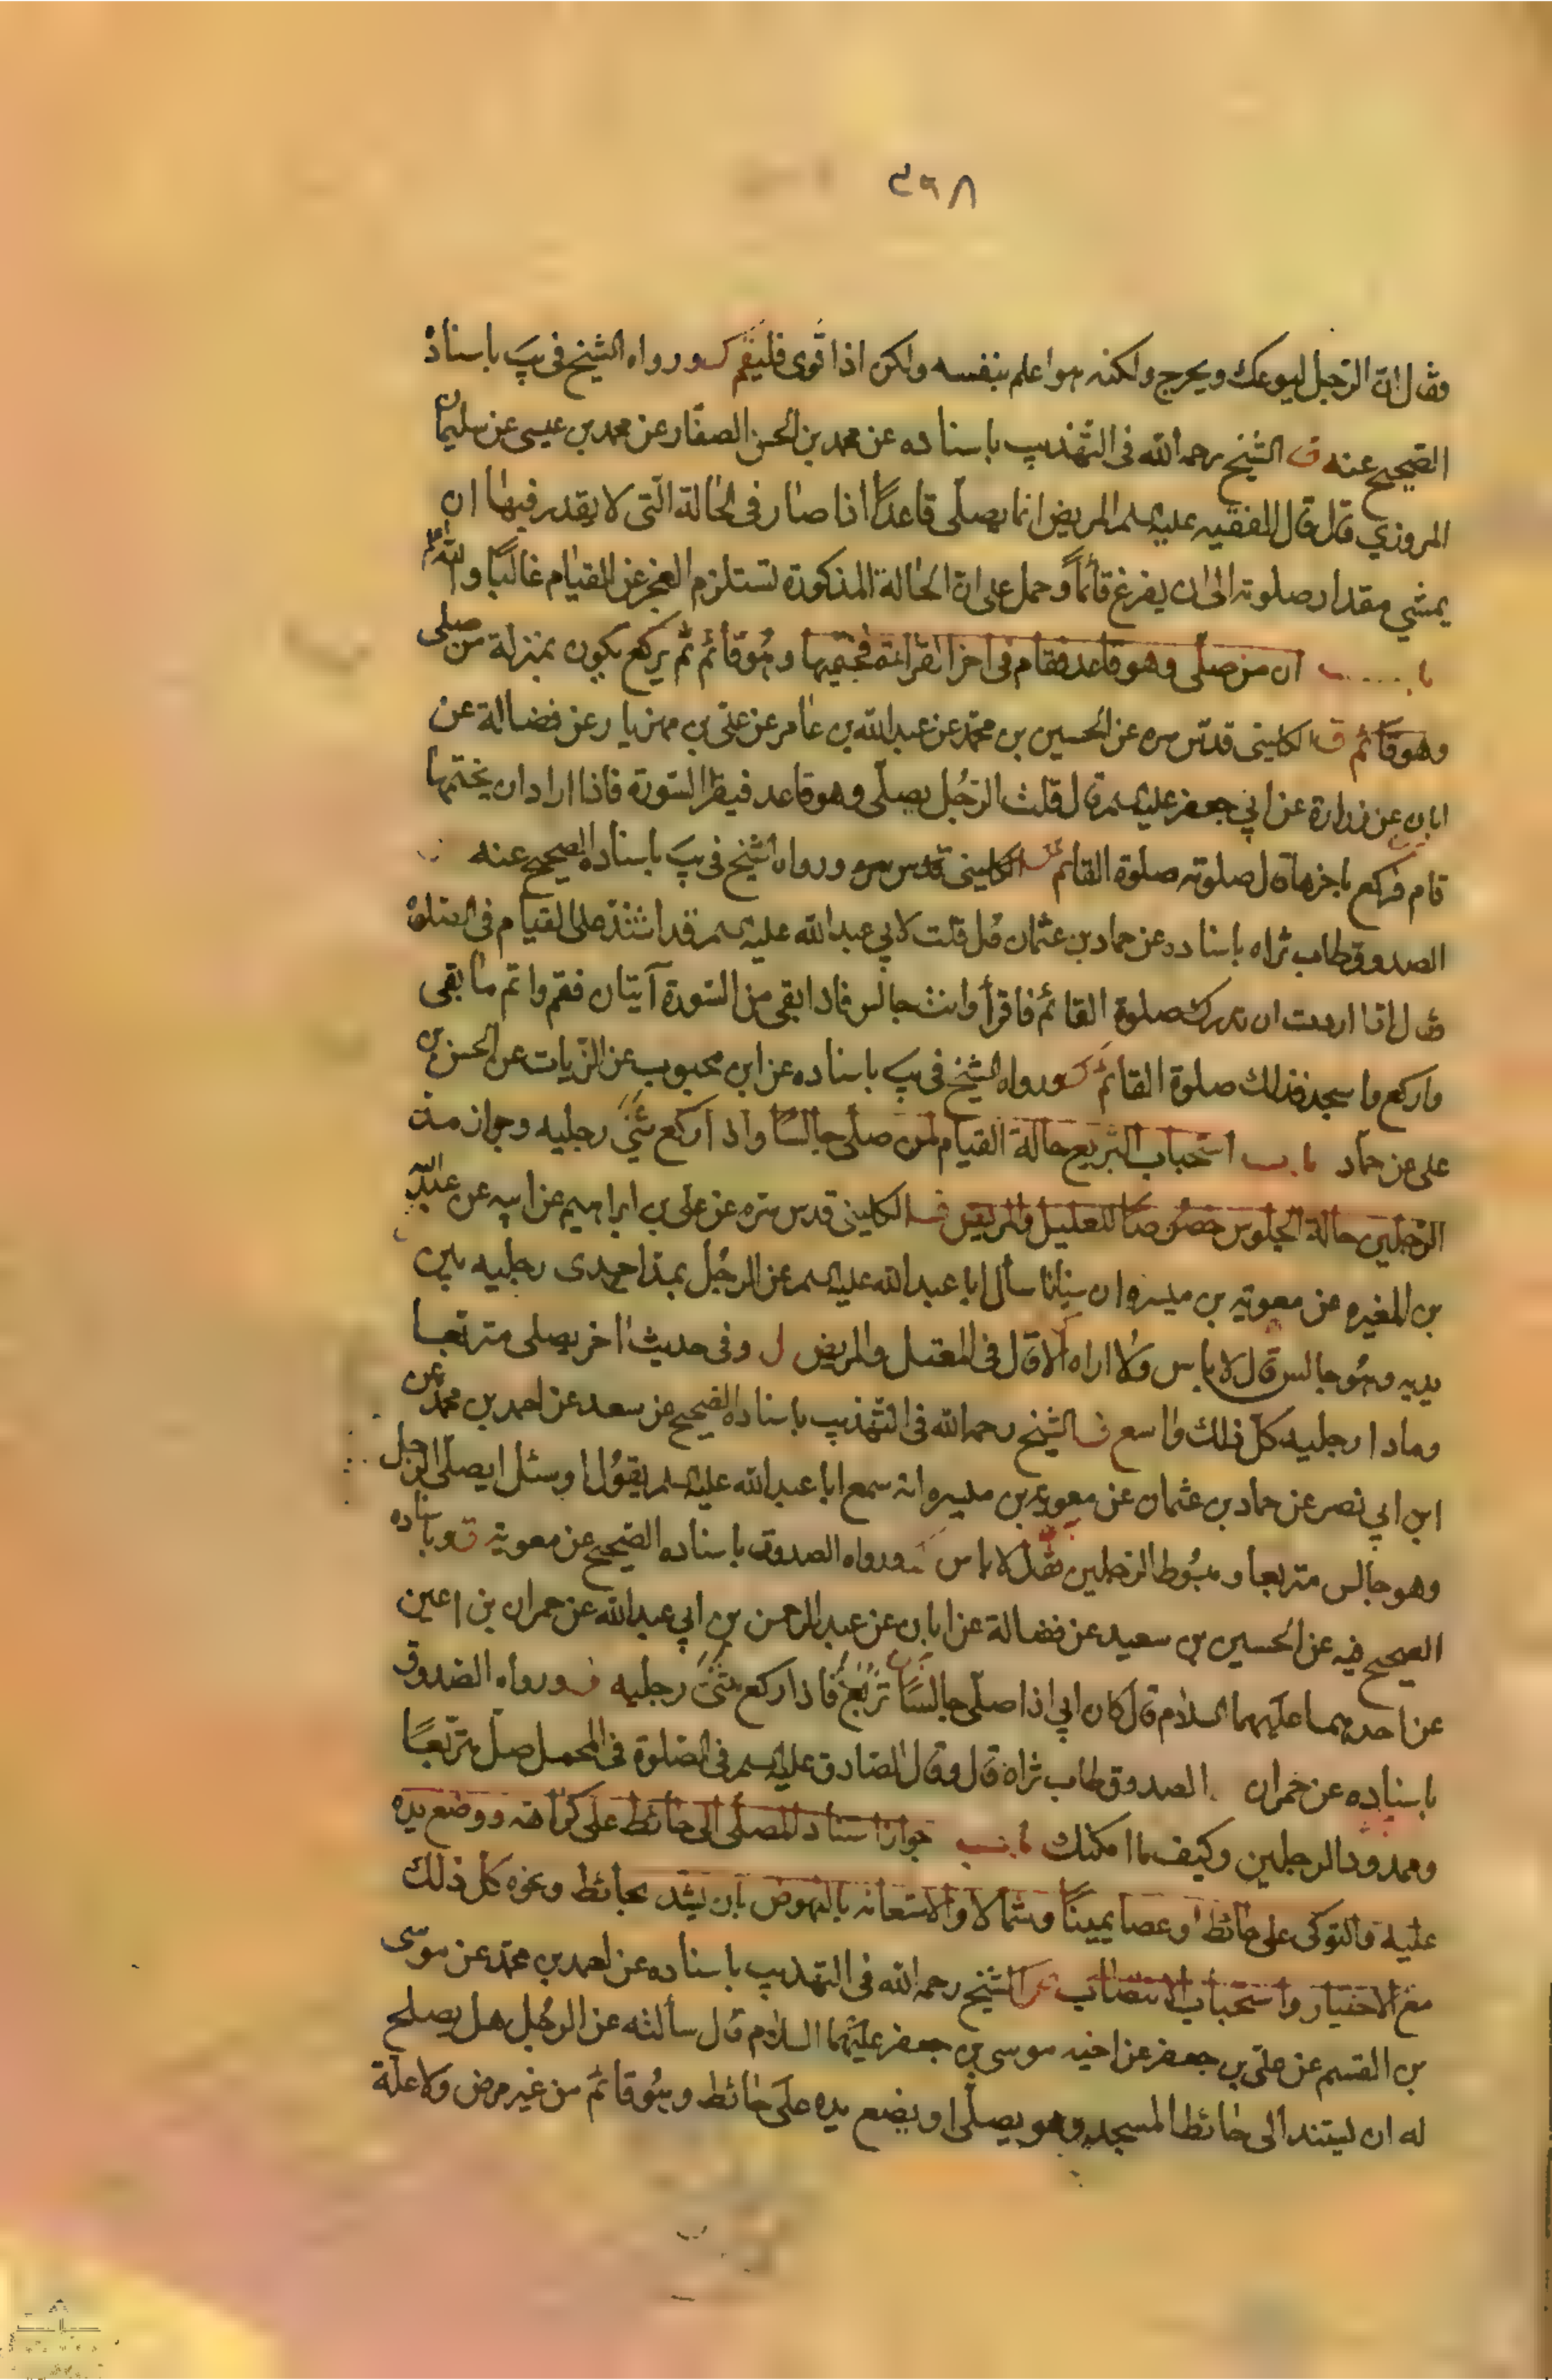 ٣٩٨
فقال ان الرجل ليوعك ويحرج ولكنه هو اعلم بنفسه ولكن اذا قوى فليقم ورواه الشيخ فى يب باسناده
الصحيح عنه ف الشيخ رحمه الله فى التهذيب باسناده عن محمد بن الحسن الصفار عن محمد بن عيسى عن سليمان
المروزي قال قال الفقيه عليه السلم المريض انما يصلى قاعدًا اذا صار فى الحالة التى لا يقدر فيها ان
يمشي مقدار صلوته الى ان يفرغ قائمًا وحمل على ان الحالة المذكورة تستلزم العجز عن القيام غالبًا والله
باب ان من صلى وهو قاعد فقام فى اخر القراءة فختمها وهو قائم ثم يركع يكون بمنزلة من صلى
وهو قائم ق الكلينى قدس سره عن الحسين بن محمد عن عبد الله بن عامر عن على بن مهزيار عن فضالة عن
ابان عن زرارة عن ابي جعفر عليه السلم قال قلت الرجل يصلى وهو قاعد فيقرا السورة فاذا اراد ان يختمها
قام فركع باخرها قال صلوته صلوة القائم الكلينى قدس سره ورواه الشيخ فى يب باسناده الصحيح عنه
الصدوق طاب ثراه باسناده عن حماد بن عثمان قال قلت لابي عبد الله عليه السلم قد اشتد على القيام فى الصلوة
فقال اذا اردت ان تدرك صلوة القائم فاقرأ وانت جالس فاذا بقى من السورة آيتان فقم واتم ما بقى
واركع واسجد فذلك صلوة القائم ورواه الشيخ فى يب باسناده عن ابن محبوب عن الزيات عن الحسن بن
على عن حماد باب استحباب التربيع حالة القيام لمن صلى جالسًا واذا ركع ثنى رجليه وجواز مد
الرجلين حالة الجلوس خصوصًا للعليل والمريض الكلينى قدس سره عن على بن ابراهيم عن ابيه عن عبد الله
بن المغيره عن معوية بن ميسره ان سنانا سأل ابا عبد الله عليه السلم عن الرجل يمد احدى رجليه بين
يديه وهو جالس قال لا باس ولا اراه الا قال فى المعتل والمريض ل وفى حديث اخر يصلى متربعا
ومادا رجليه كل ذلك واسع ف الشيخ رحمه الله فى التهذيب باسناده الصحيح عن سعد عن احمد بن محمد عن
ابن ابي نصر عن حماد بن عثمان عن معوية بن ميسره انه سمع ابا عبد الله عليه السلم يقول او سئل ايصلى الرجل
وهو جالس متربعا ومبسوط الرجلين فقال لا باس ورواه الصدوق باسناده الصحيح عن معوية ق وباسناده
الصحيح فيه عن الحسين بن سعيد عن فضالة عن ابان عن عبد الرحمن بن ابي عبد الله عن حمران بن اعين
عن احدهما عليهما السلام قال كان ابي اذا صلى جالسًا تربع فاذا ركع ثنى رجليه ورواه الصدوق
باسناده عن حمران الصدوق طاب ثراه قال وقال الصادق عليه السلم فى الصلوة فى المحمل صل متربعًا
وممدود الرجلين وكيف ما امكنك باب جواز استناد المصلى الى حائط على كراهته ووضع يده
عليه والتوكى على حائط او عصا يمينًا وشمالا والاستعانة بالنهوض بان يشد بحائط ونحوه كل ذلك
مع الاختيار واستحباب الانتصاب الشيخ رحمه الله فى التهذيب باسناده عن احمد بن محمد عن موسى
بن القسم عن على بن جعفر عن اخيه موسى بن جعفر عليهما السلام قال سألته عن الرجل هل يصلح
له ان يستند الى حائط المسجد وهو يصلى او يضع يده على حائط وهو قائم من غير مرض ولا علة